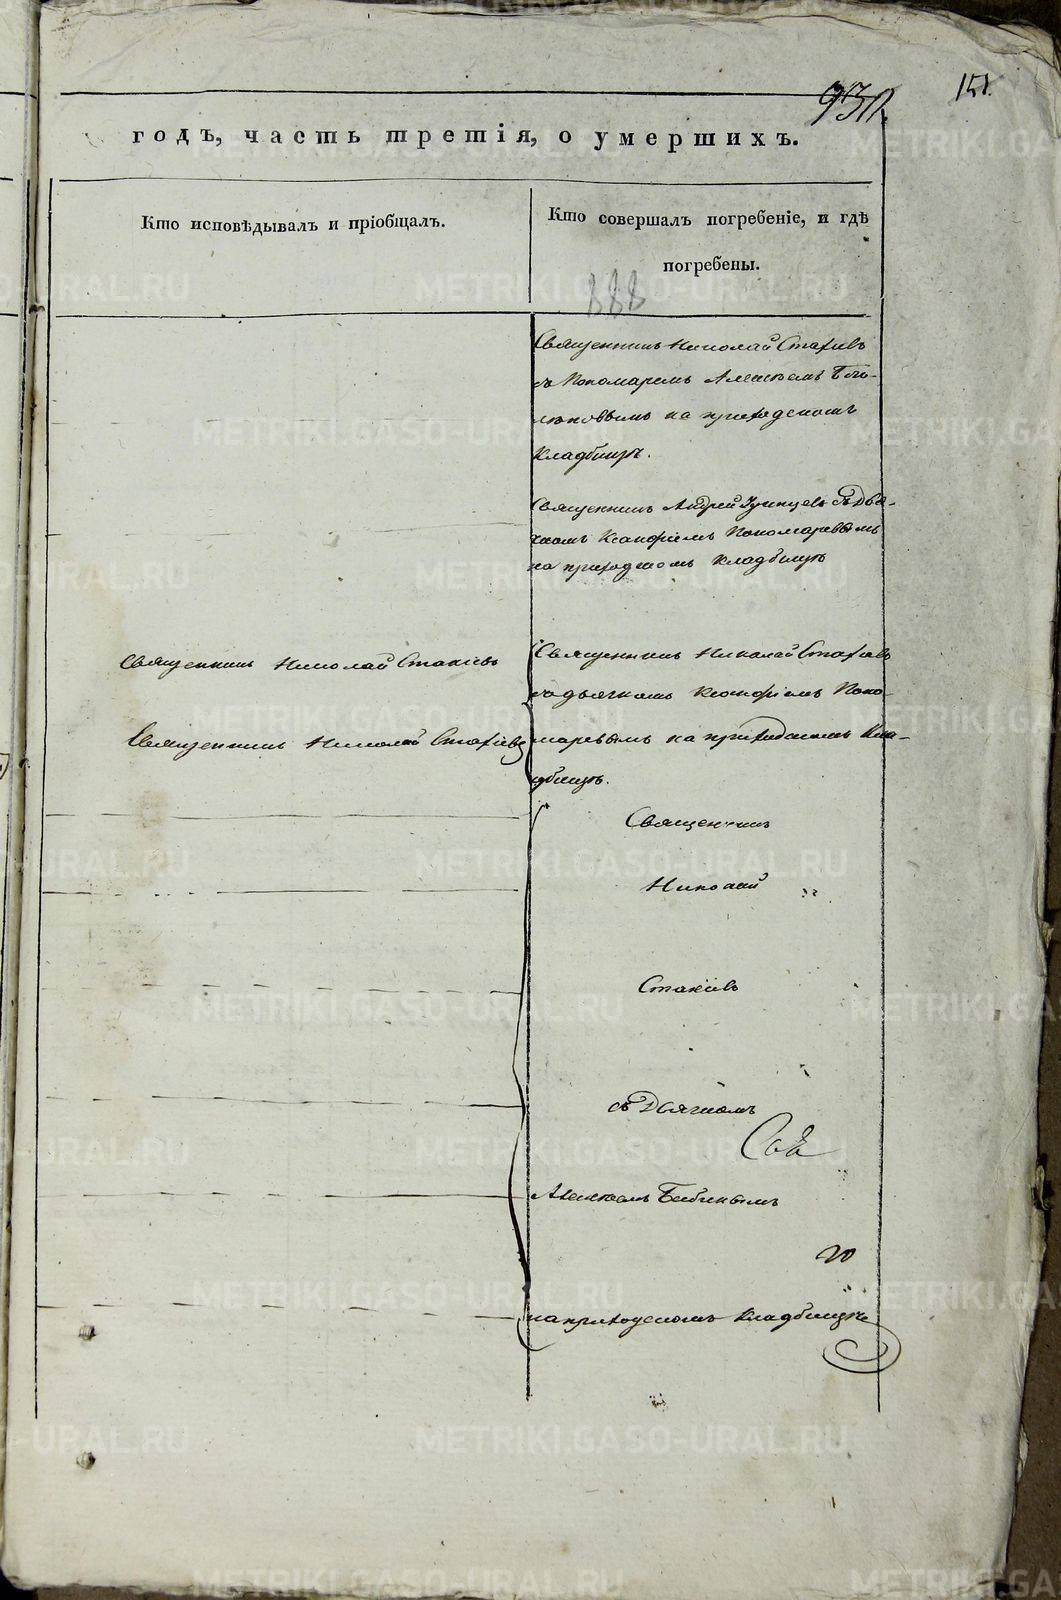 151.
годъ, часть третія, о умершихъ.
Кто исповѣдывалъ и пріобщалъ.
Кто совершалъ погребеніе, и гдѣ
погребены.
888
Священникъ Николай Стахіевъ
съ Пономаремъ Алексѣемъ
на приходскомъ
Кладбищѣ.
Священникъ Андрей съ Дья-
чкомъ Ксенофонтомъ Пономаревымъ
на приходскомъ кладбищѣ
Священникъ Николай Стахіевъ
Священникъ Николай Стахіевъ
Священникъ Николай Стахіевъ
съ дьячкомъ Поно-
маревымъ на приходскомъ Кла-
дбищѣ.
Священникъ
Николай
Стахіевъ
съ Дьячкомъ
Алексѣемъ Бабинымъ
на приходскомъ кладбищѣ
METRIKI.GASO-URAL.RU